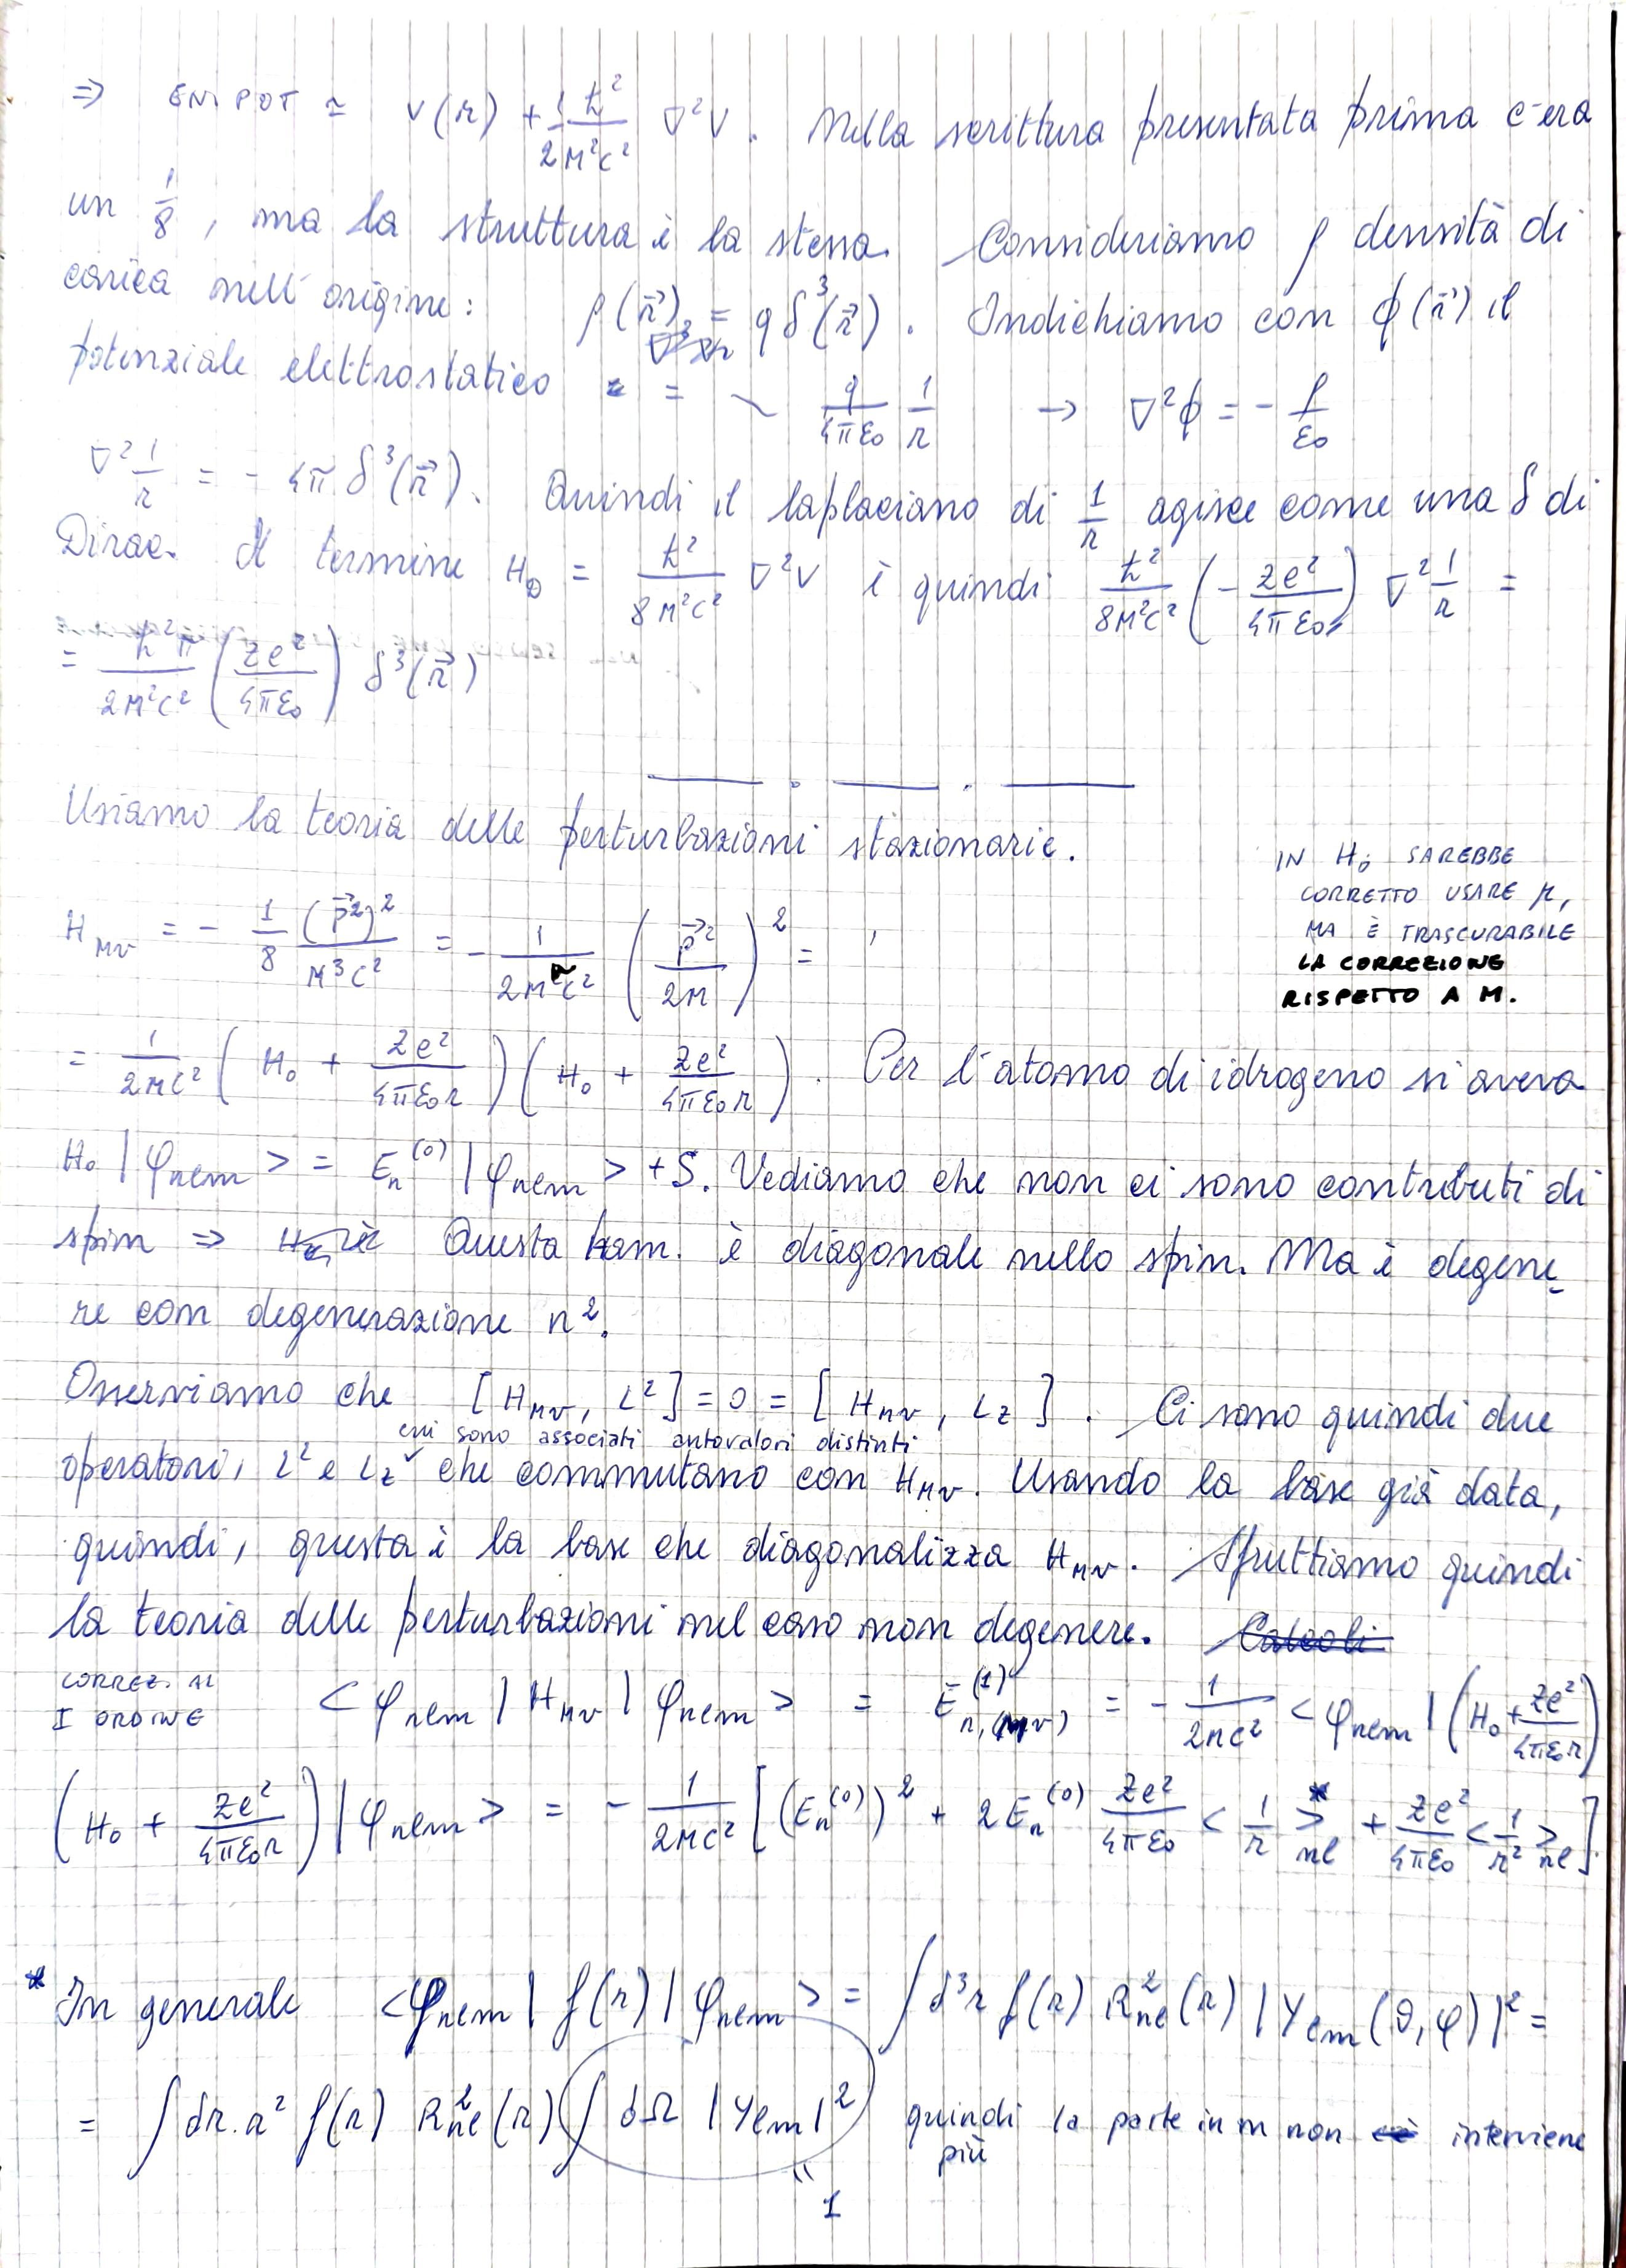 ⇒ EN. POT ≃ V(r) + 1/2 ħ²/M²c² ∇²V. Nella scrittura presentata prima c'era
un 1/8, ma la struttura è la stessa. Consideriamo ρ densità di
carica nell'origine: ρ(r⃗) = q δ³(r⃗). Indichiamo con ϕ(r⃗) il
potenziale elettrostatico = q/4πε₀ 1/r → ∇²ϕ = - ρ/ε₀
∇² 1/r = - 4π δ³(r⃗). Quindi il laplaciano di 1/r agisce come una δ di
Dirac. Il termine H_D = ħ²/8M²c² ∇²V è quindi ħ²/8M²c² (- Ze²/4πε₀) ∇² 1/r =
= ħ²π/2M²c² (Ze²/4πε₀) δ³(r⃗)
Usiamo la teoria delle perturbazioni stazionarie.
IN H₀ SAREBBE
CORRETTO USARE μ,
MA È TRASCURABILE
LA CORREZIONE
RISPETTO A M.
H_MV = - 1/8 (p⃗²)²/M³c² = - 1/2Mc² (p⃗²/2M)² =
= 1/2Mc² (H₀ + Ze²/4πε₀r)(H₀ + Ze²/4πε₀r). Per l'atomo di idrogeno si aveva
H₀ |φnlm> = En⁽⁰⁾ |φnlm> + S. Vediamo che non ci sono contributi di
spin ⇒ Questa ham. è diagonale nello spin. Ma è degene_
re con degenerazione n².
Osserviamo che [H_MV, L²] = 0 = [H_MV, Lz]. Ci sono quindi due
cui sono associati autovalori distinti
operatori, L² e Lz che commutano con H_MV. Usando la base già data,
quindi, questa è la base che diagonalizza H_MV. Sfruttiamo quindi
la teoria delle perturbazioni nel caso non degenere. Calcoli
CORREZ. AL
I ORDINE
<φnlm | H_MV | φnlm> = E⁽¹⁾n,(MV) = - 1/2Mc² <φnlm | (H₀ + Ze²/4πε₀r)
(H₀ + Ze²/4πε₀r) |φnlm> = - 1/2Mc² [(En⁽⁰⁾)² + 2En⁽⁰⁾ Ze²/4πε₀ <1/r>nl* + Ze²/4πε₀ <1/r²>nl].
* In generale <φnlm | f(r) | φnlm> = ∫d³r f(r) R²nl(r) |Ylm(θ,φ)|² =
= ∫dr·r² f(r) R²nl(r) ∫dΩ |Ylm|² quindi la parte in m non interviene
più
" 1